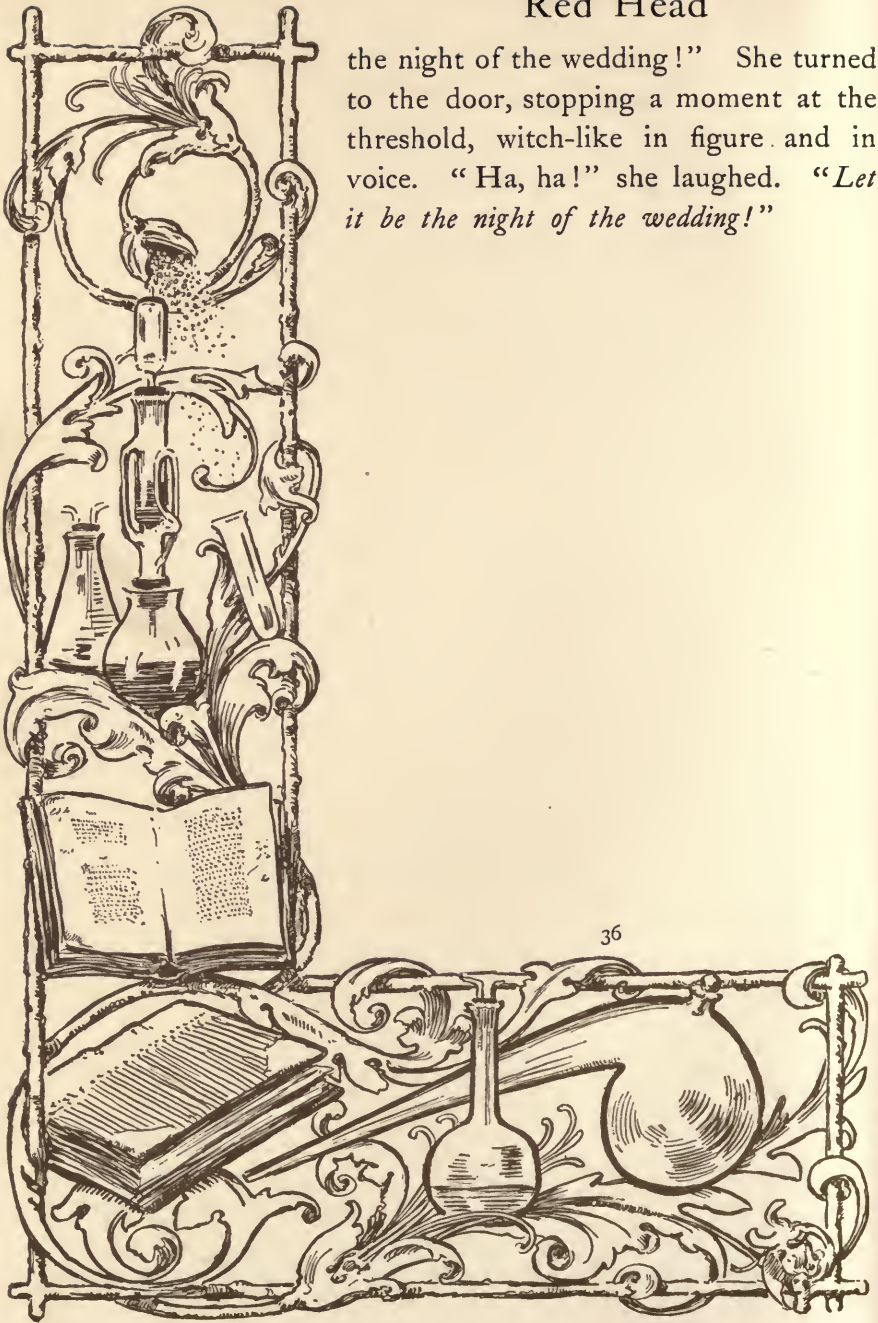 Red Head
the night of the wedding!" She turned
to the door, stopping a moment at the
threshold, witch-like in figure and in
voice. "Ha, ha!" she laughed. "Let
it be the night of the wedding!"
36